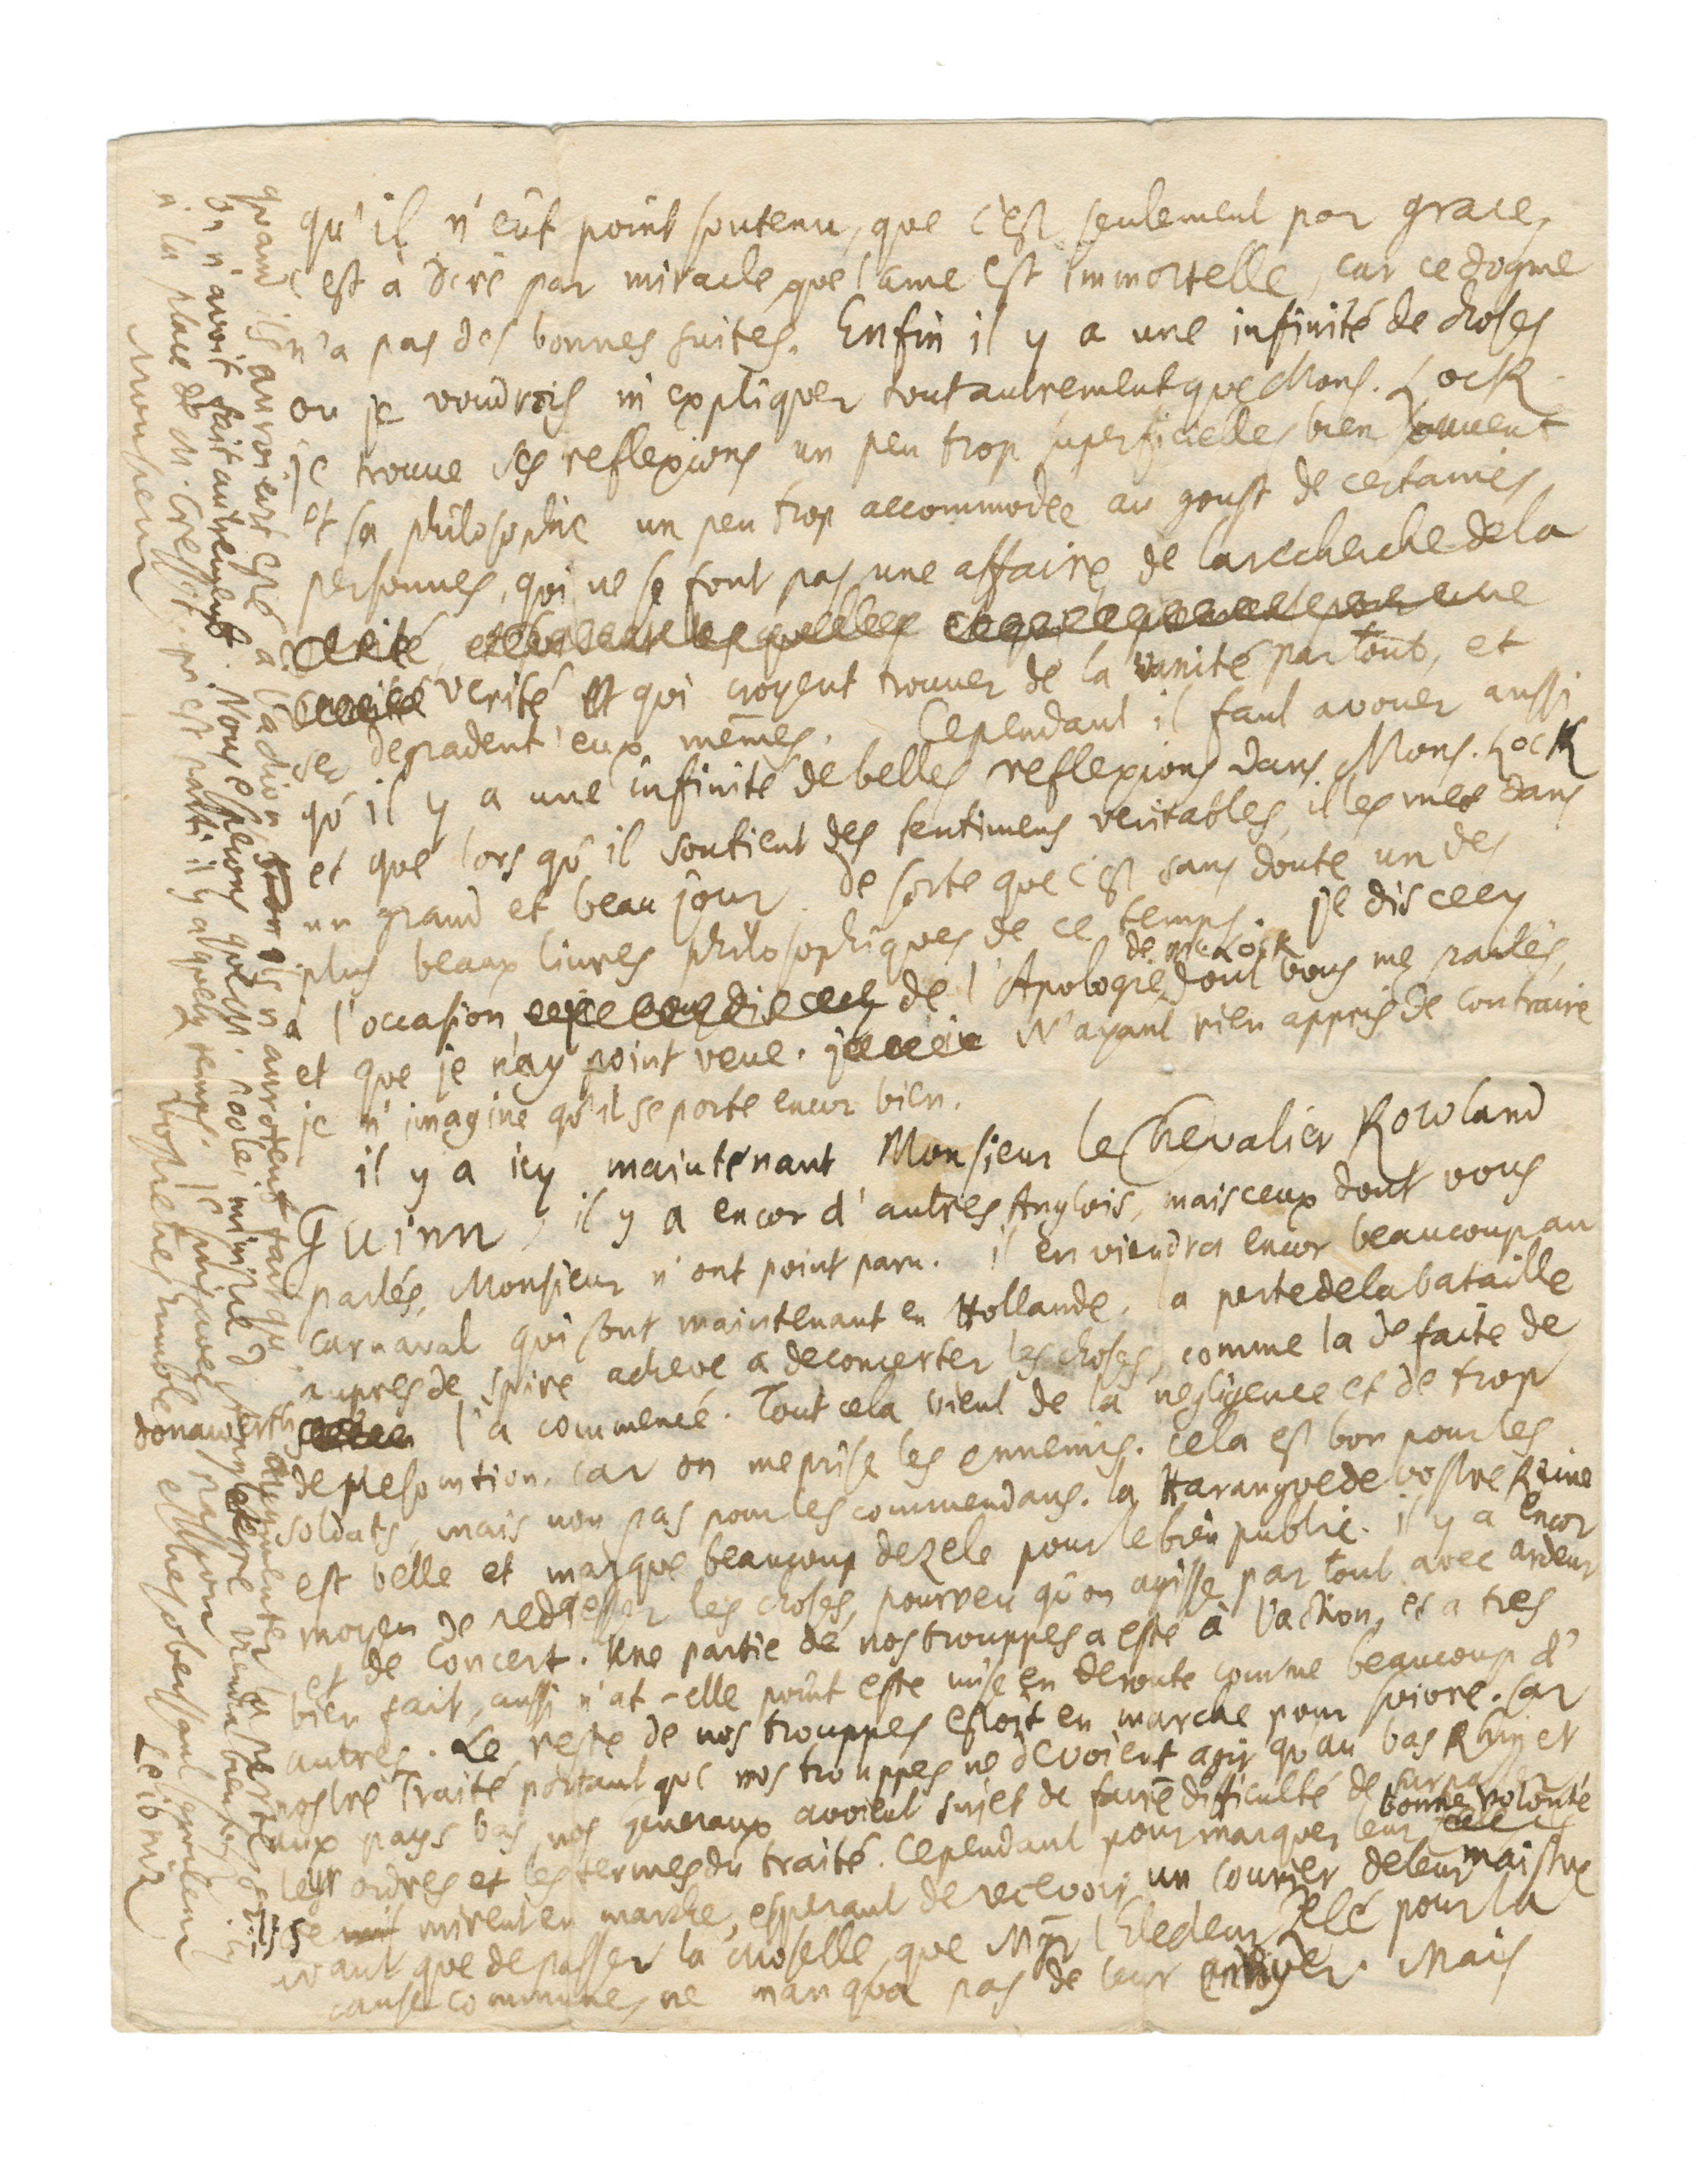 qu'il n'eût point soutenu, que c'est seulement par grace,
c'est à dire par miracle que l'ame est immortelle, car ce dogme
n'a pas des bonnes suites. Enfin il y a une infinité de choses
ou je voudrois m'expliquer tout autrement que Mons. Lock
je trouve ses reflexions un peu trop superficielles bien souvent
et sa philosophie un peu trop accommodée au goust de certaines
personnes, qui ne se font pas une affaire de la recherche de la
verité et qui croyent trouver de la vanité par tout, et
se degradent eux mêmes. Cependant il faut avouer aussi
qu'il y a une infinité de belles reflexions dans Mons. Lock
et que lors qu'il soutient des sentimens veritables, il les met dans
un grand et beau jour. De sorte que c'est sans doute un des
plus beaux livres philosophiques de ce temps. je dis cecy
à l'occasion de l'Apologie de M. Lock dont vous me parlés,
et que je n'ay point veue. N'ayant rien appris de contraire
je m'imagine qu'il se porte encor bien.
il y a icy maintenant Monsieur le Chevalier Rowland
Guinn, il y a encor d'autres Anglois, mais ceux dont vous
parlés, Monsieur n'ont point paru. il en viendra encor beaucoup au
carnaval qui sont maintenant en Hollande. la perte de la bataille
aupres de Spire acheve a deconcerter les choses, comme la defaite de
donawerth l'a commencé. Tout cela vient de la negligence et de trop
de presomtion. car on meprise les ennemis. cela est bon pour les
soldats, mais non pas pour les commendans. la Harangue de vostre Reine
est belle et marque beaucoup de zele pour le bien public. il y a encor
moyen de redresser les choses, pourveu qu'on agisse par tout avec ardeur
et de concert. Une partie de nos trouppes a esté à l'action, et a tres
bien fait, aussi n'at-elle point esté mise en deroute comme beaucoup d'
autres. Le reste de nos trouppes estoit en marche pour suivre. car
nostre Traité portant que nos trouppes ne devoient agir qu'au bas Rhin et
aux pays bas, nos generaux avoient sujet de faire difficulté de surpasser
leur ordres et les termes du traité. Cependant pour marquer leur bonne volonté
ils se mirent en marche, esperant de recevoir un courier de leur maistre
avant que de passer la Moselle, que Mgr l'Electeur zelé pour la
cause commune, ne manqua pas de leur envoyer. Mais
quand ils auroient esté à l'action ils n'auroient fait qu'augmenter la perte, si
on n'avoit fait autrement. Nous esperons que M. Poole, ministre d'Angleterre viendra bien tost icy
à la place de M. Cresset, qui est parti il y a quelque temps. je suis avec passion
Monsieur
vostre tres humble et tres obeissant serviteur
Leibniz